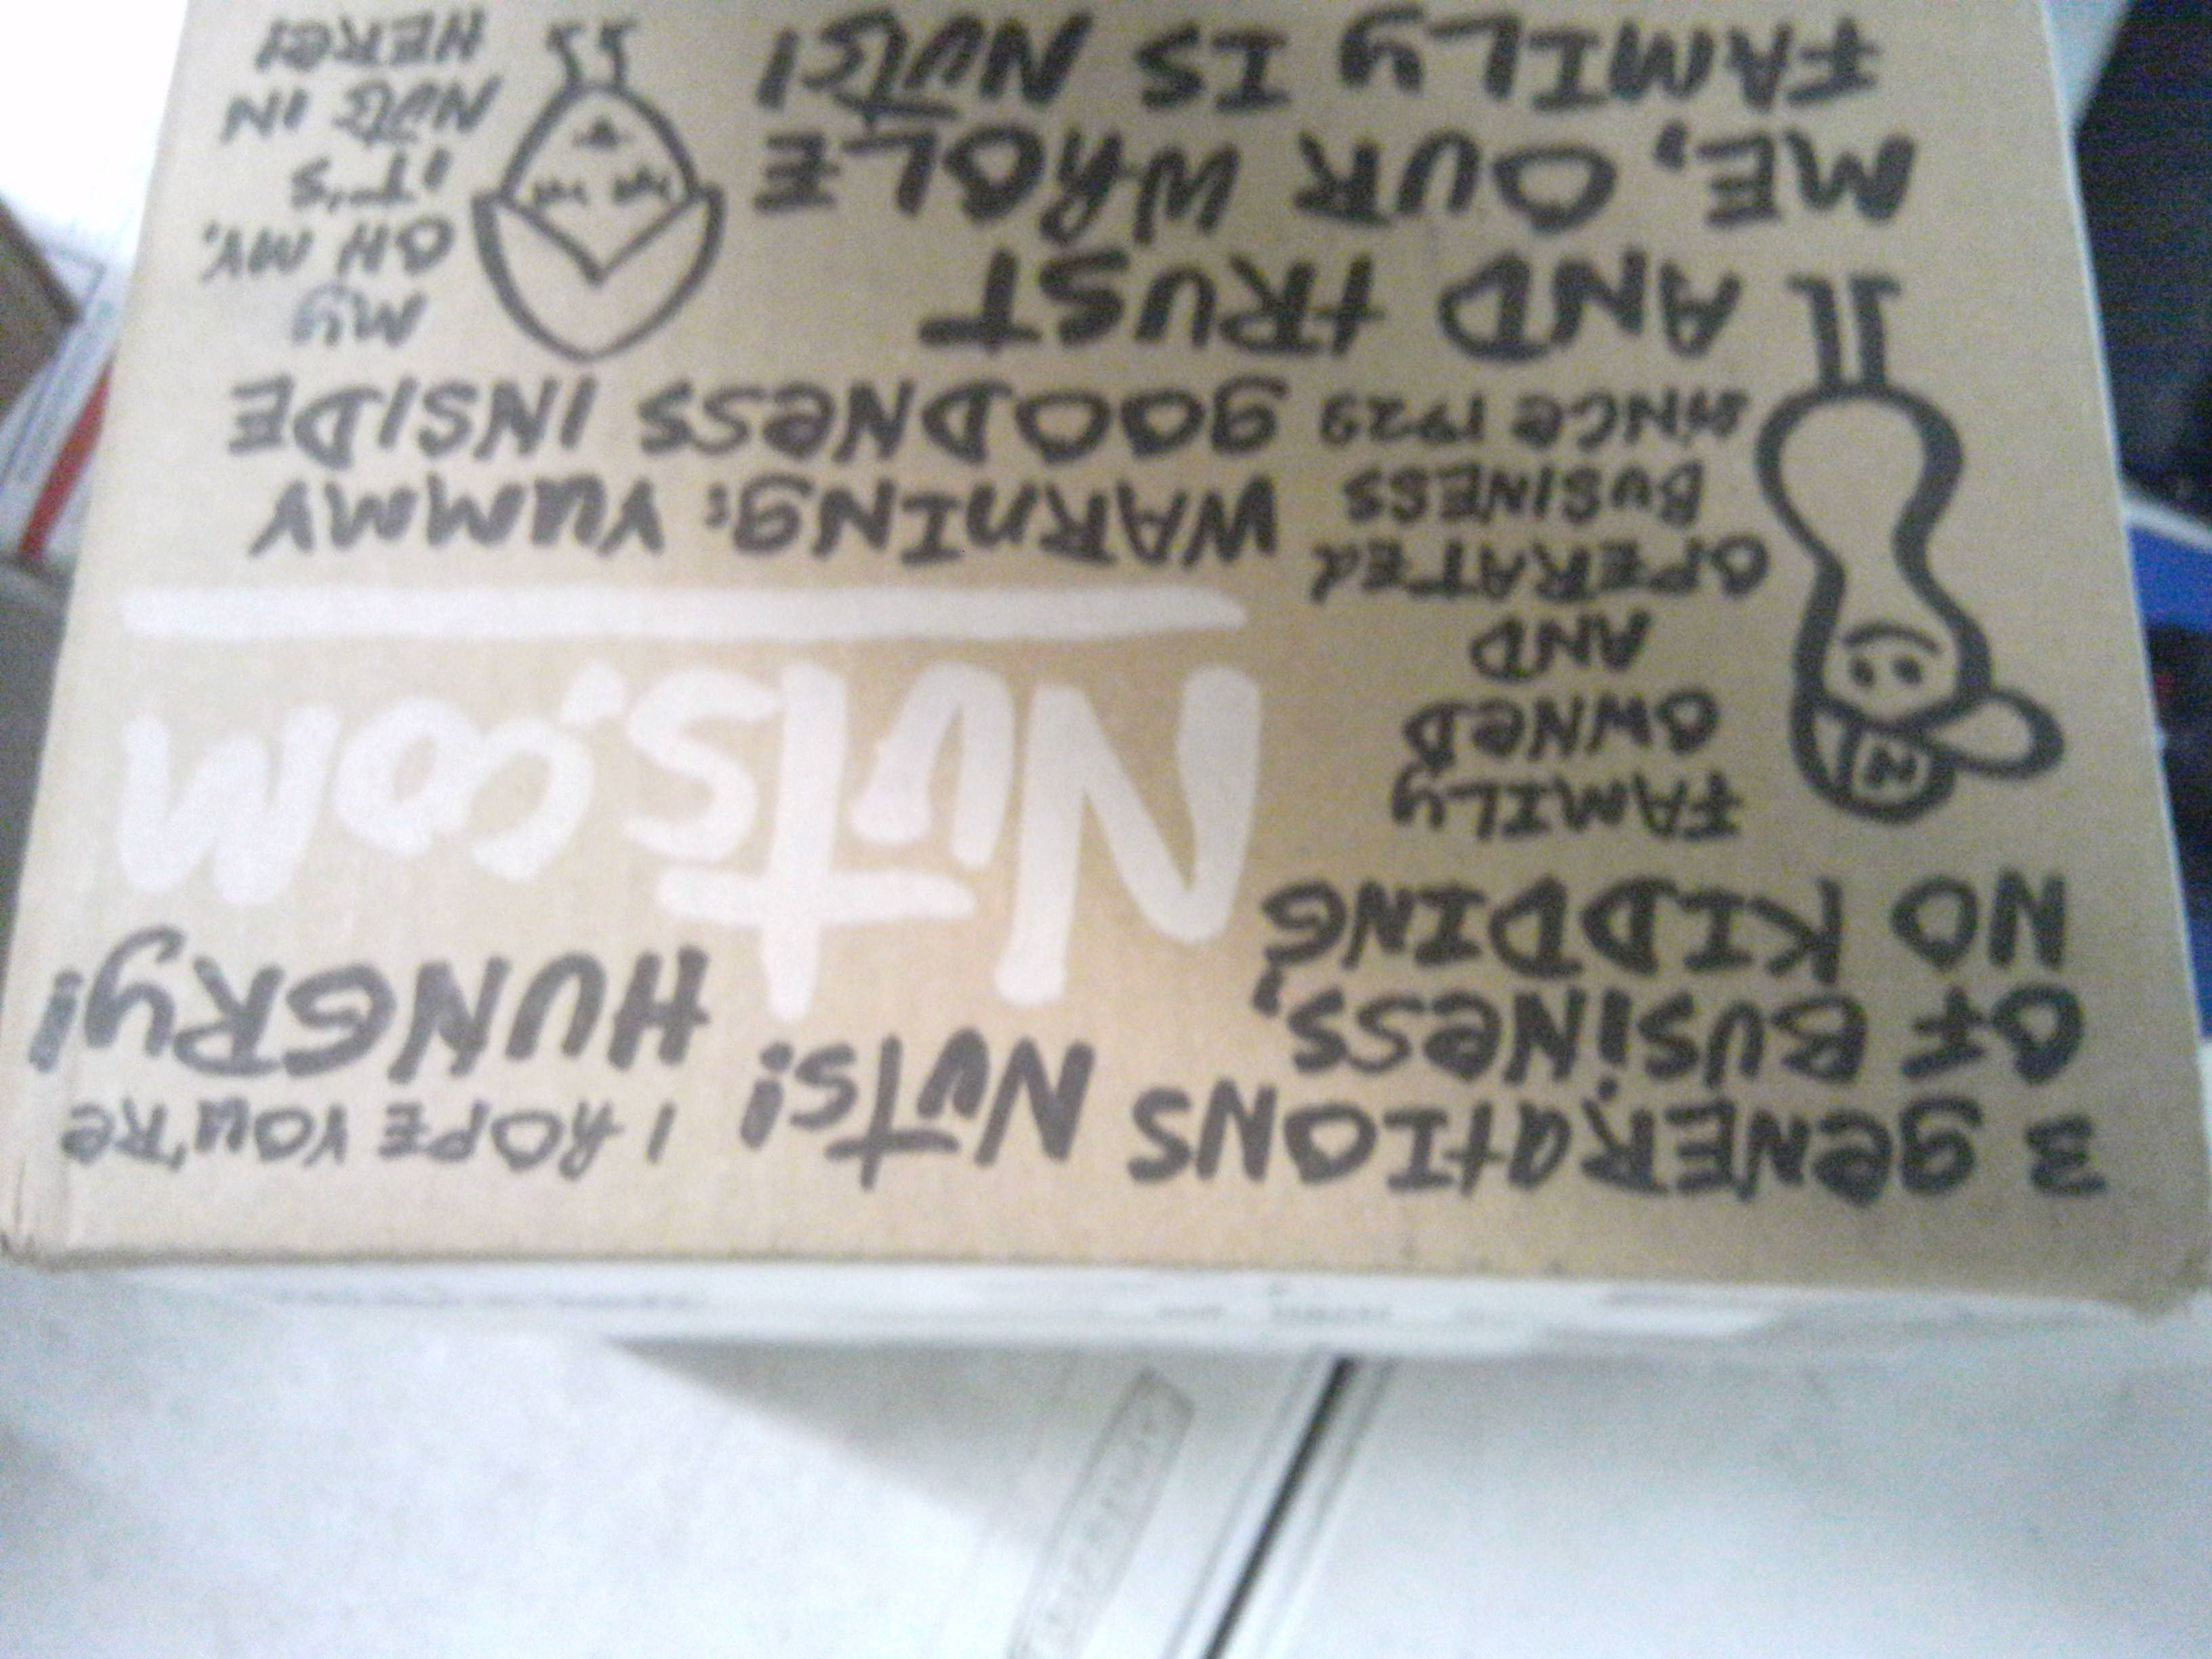 3 geNERatIONS
OF BUSiNess,
NO KIDDING
NUTS!
I hOPE YOU'Re
HUNGRy!
Nuts.com
FAMILY
OWNeD
AND
OPERATEd
BUSINESS
SiNCe 1929
WARNING: YUMMY
gOODNeSS INSIDE
AND tRUST
ME, OUR WhOLE
FAMILY IS NUts!
My
OH MY,
IT'S
NUts IN
HERe!
N